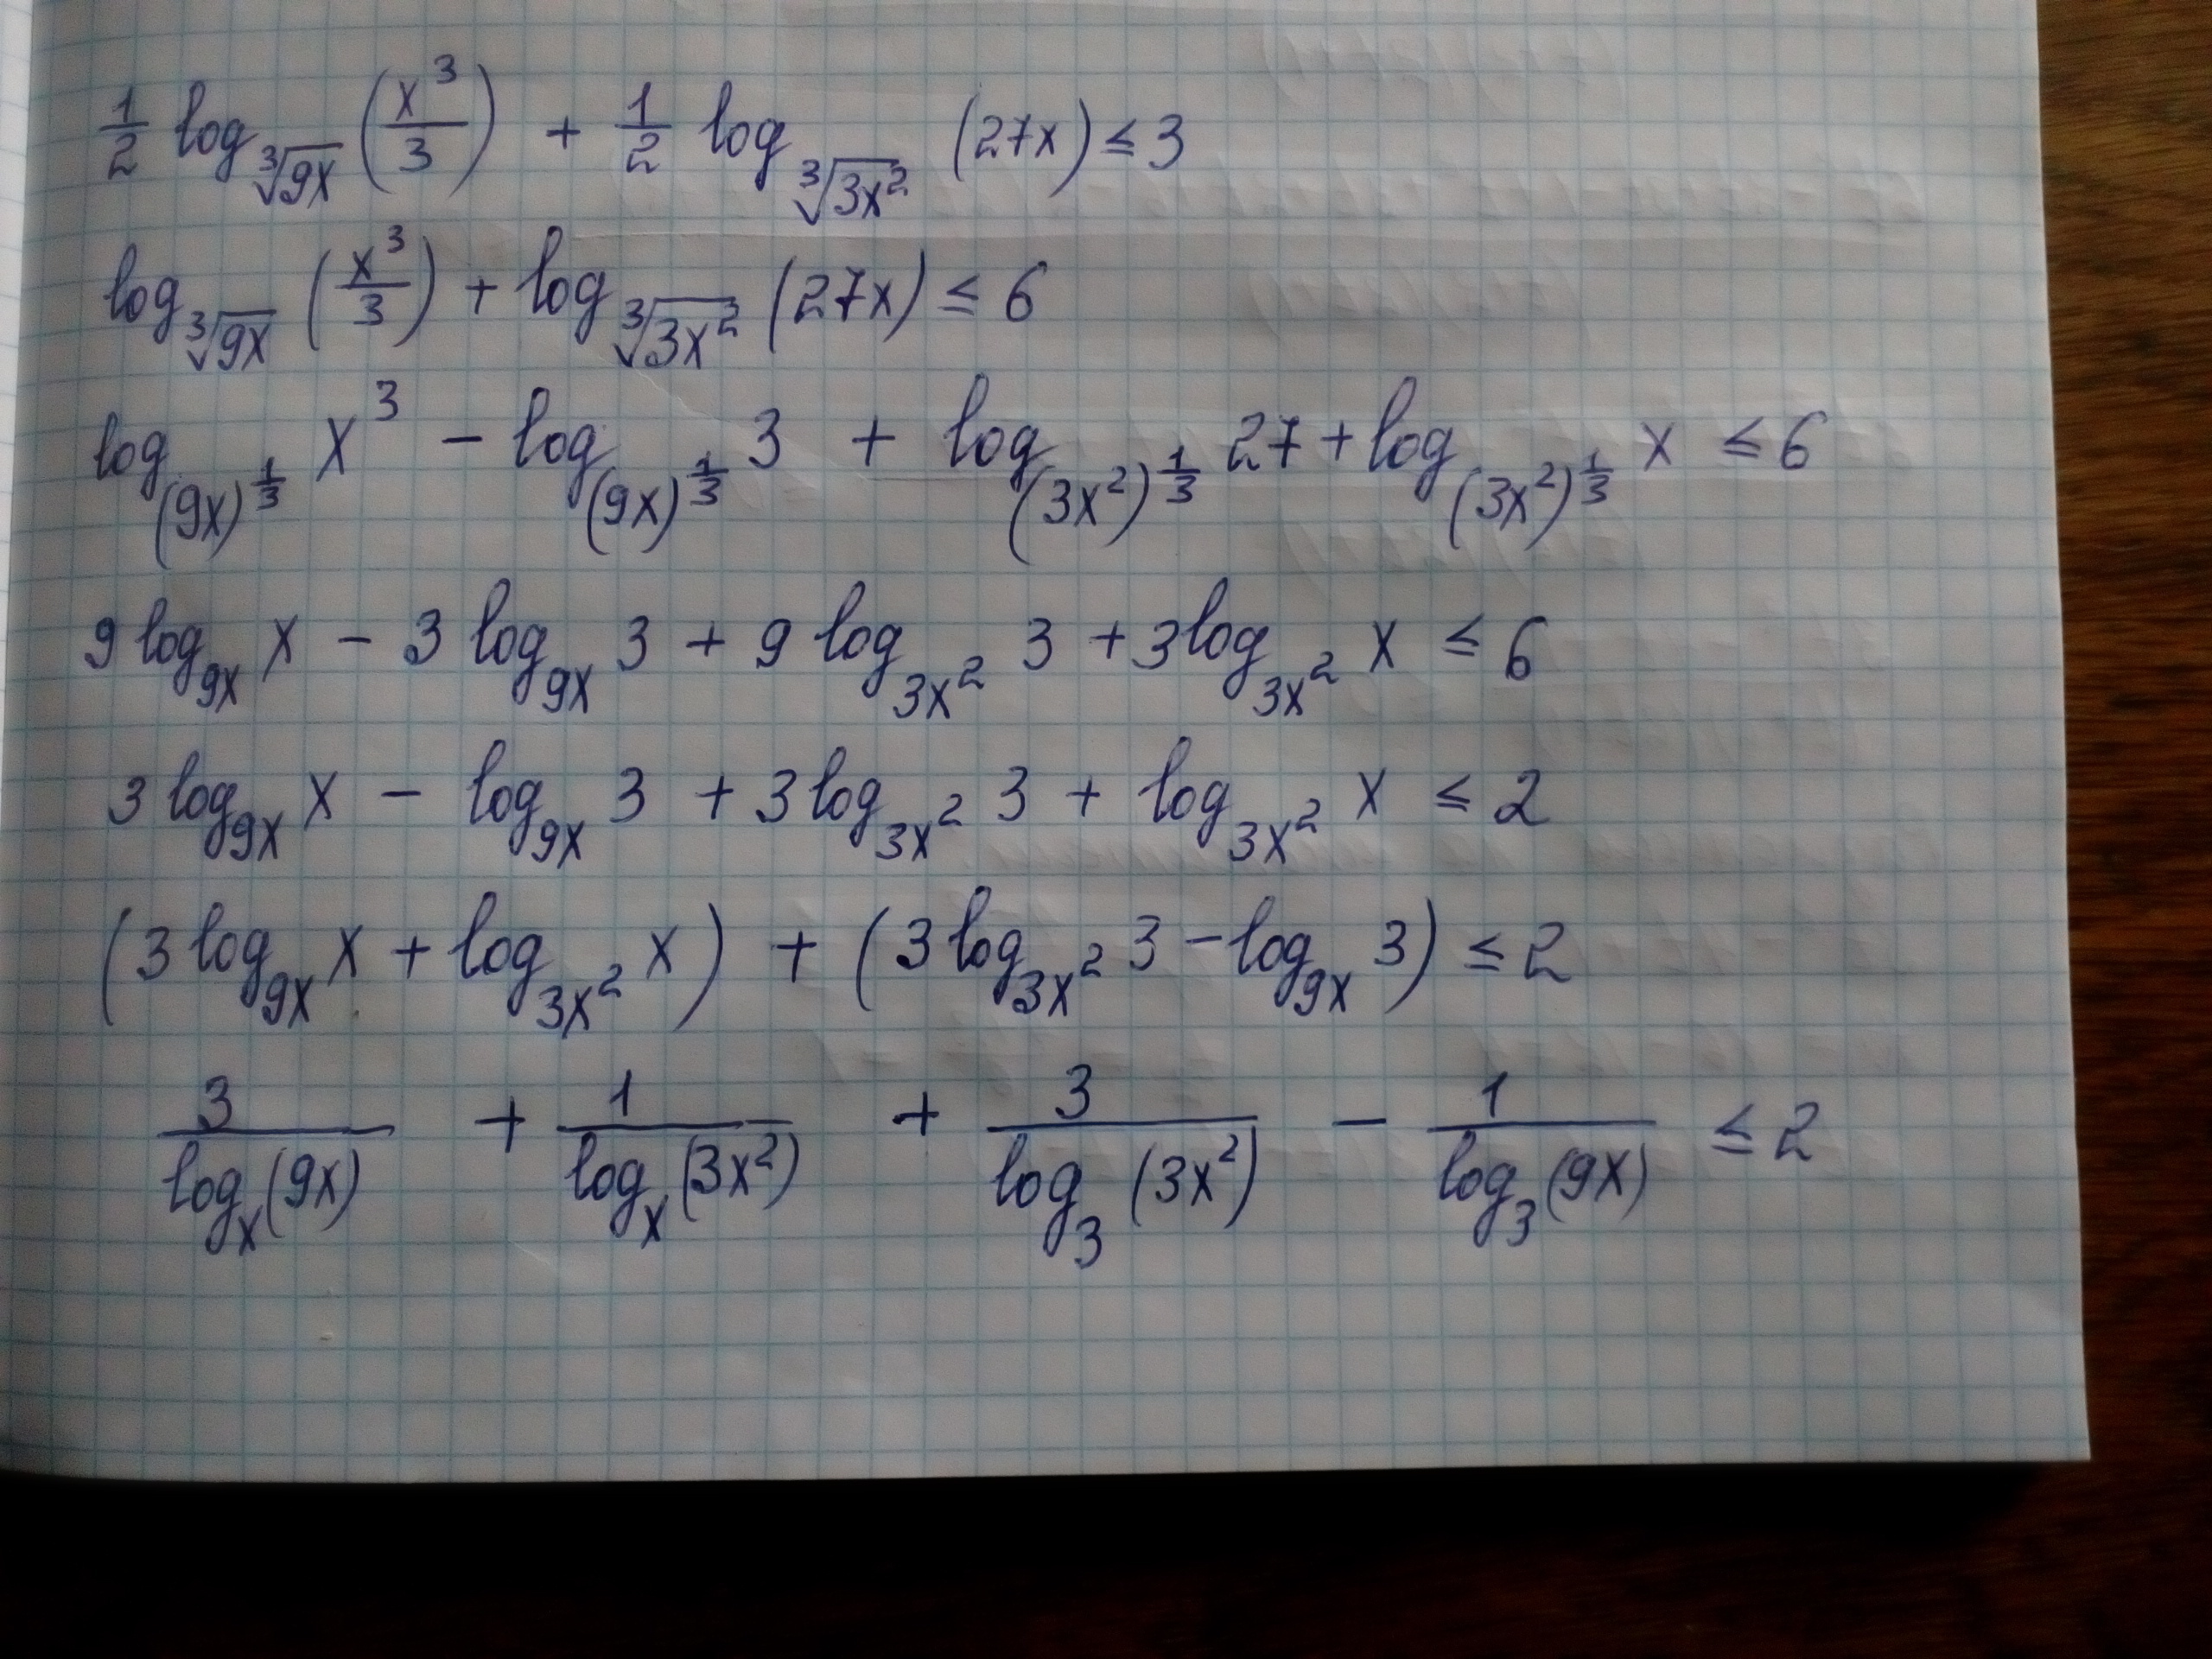 1/2 log_∛(9x) (x³/3) + 1/2 log_∛(3x²) (27x) ≤ 3
log_∛(9x) (x³/3) + log_∛(3x²) (27x) ≤ 6
log_(9x)^(1/3) x³ − log_(9x)^(1/3) 3 + log_(3x²)^(1/3) 27 + log_(3x²)^(1/3) x ≤ 6
9 log_9x x − 3 log_9x 3 + 9 log_3x² 3 + 3 log_3x² x ≤ 6
3 log_9x x − log_9x 3 + 3 log_3x² 3 + log_3x² x ≤ 2
(3 log_9x x + log_3x² x) + (3 log_3x² 3 − log_9x 3) ≤ 2
3/log_x (9x) + 1/log_x (3x²) + 3/log_3 (3x²) − 1/log_3 (9x) ≤ 2